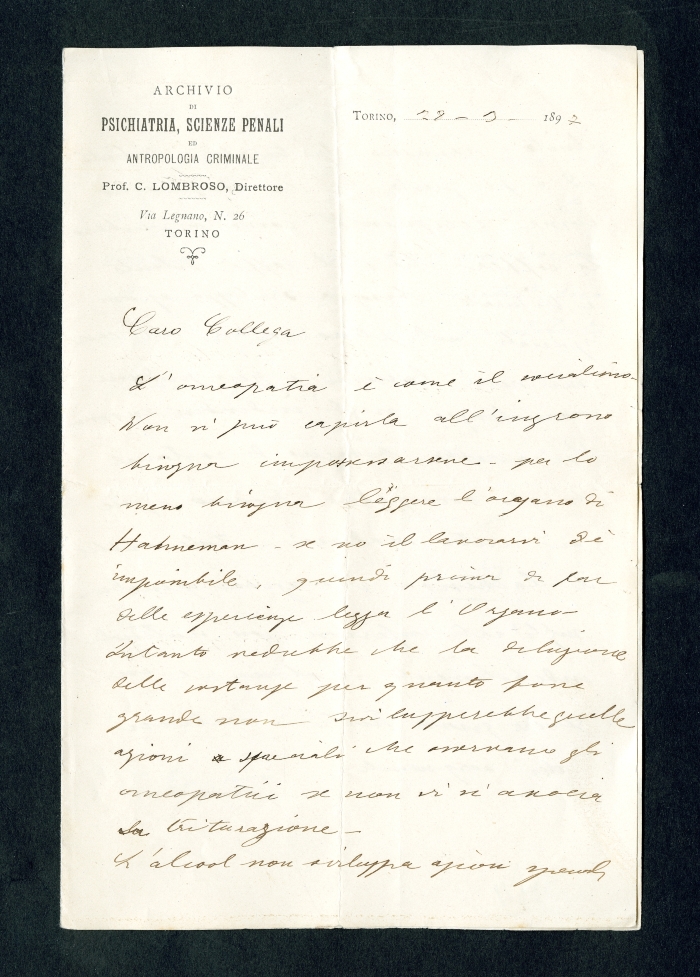 ARCHIVIO
DI
PSICHIATRIA, SCIENZE PENALI
ED
ANTROPOLOGIA CRIMINALE
Prof. C. LOMBROSO, Direttore
Via Legnano, N. 26
TORINO
TORINO, 189
Caro Collega
L'omeopatia è come il socialismo
Non si può capirla all'ingrosso
bisogna impossessarsene - per lo
meno bisogna leggere l'organo di
Hahneman - se no il lavorarvi è
impossibile, quindi prima di far
delle esperienze legga l'Organo -
Intanto vedrebbe che la diluzione
delle sostanze per quanto fosse
grande non svilupperebbe quelle
azioni speciali che osservano gli
omeopatici se non vi si associa
la triturazione -
L'alcool non sviluppa azioni